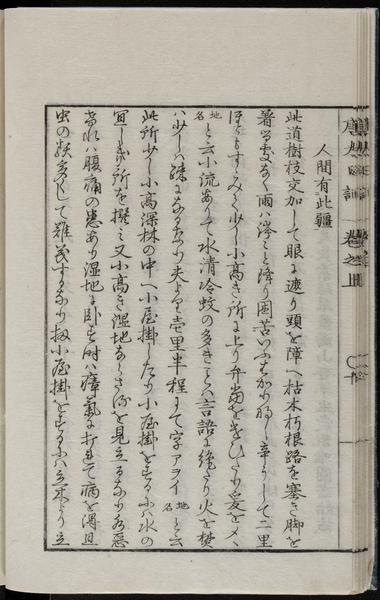 人間有此疆
此道樹枝交加して眼を遮り頭を障へ枯木朽根路を塞き脚を
着る処なく雨は滂々と降り困苦いふはかりなし辛うして二里
ほともすゝみて少し小高き所に上り弁当をきひたり爰をメヽ
地名と云小流ありて水清冷蚊の多きことは言語に絶たり火を焚
は少しは疎になるなり夫より壱里半程にて字アヲイ地名と云
此所少し小高深林の中へ小屋掛したり小屋掛をするには水の
宜しき所を撰み又小高き湿地ならさる所を見立るなり水悪
けれは腹痛の患あり湿地に臥す時は瘴気に打れて病を得且
虫の類多くして難義するなり扨小屋掛をするには立木より立